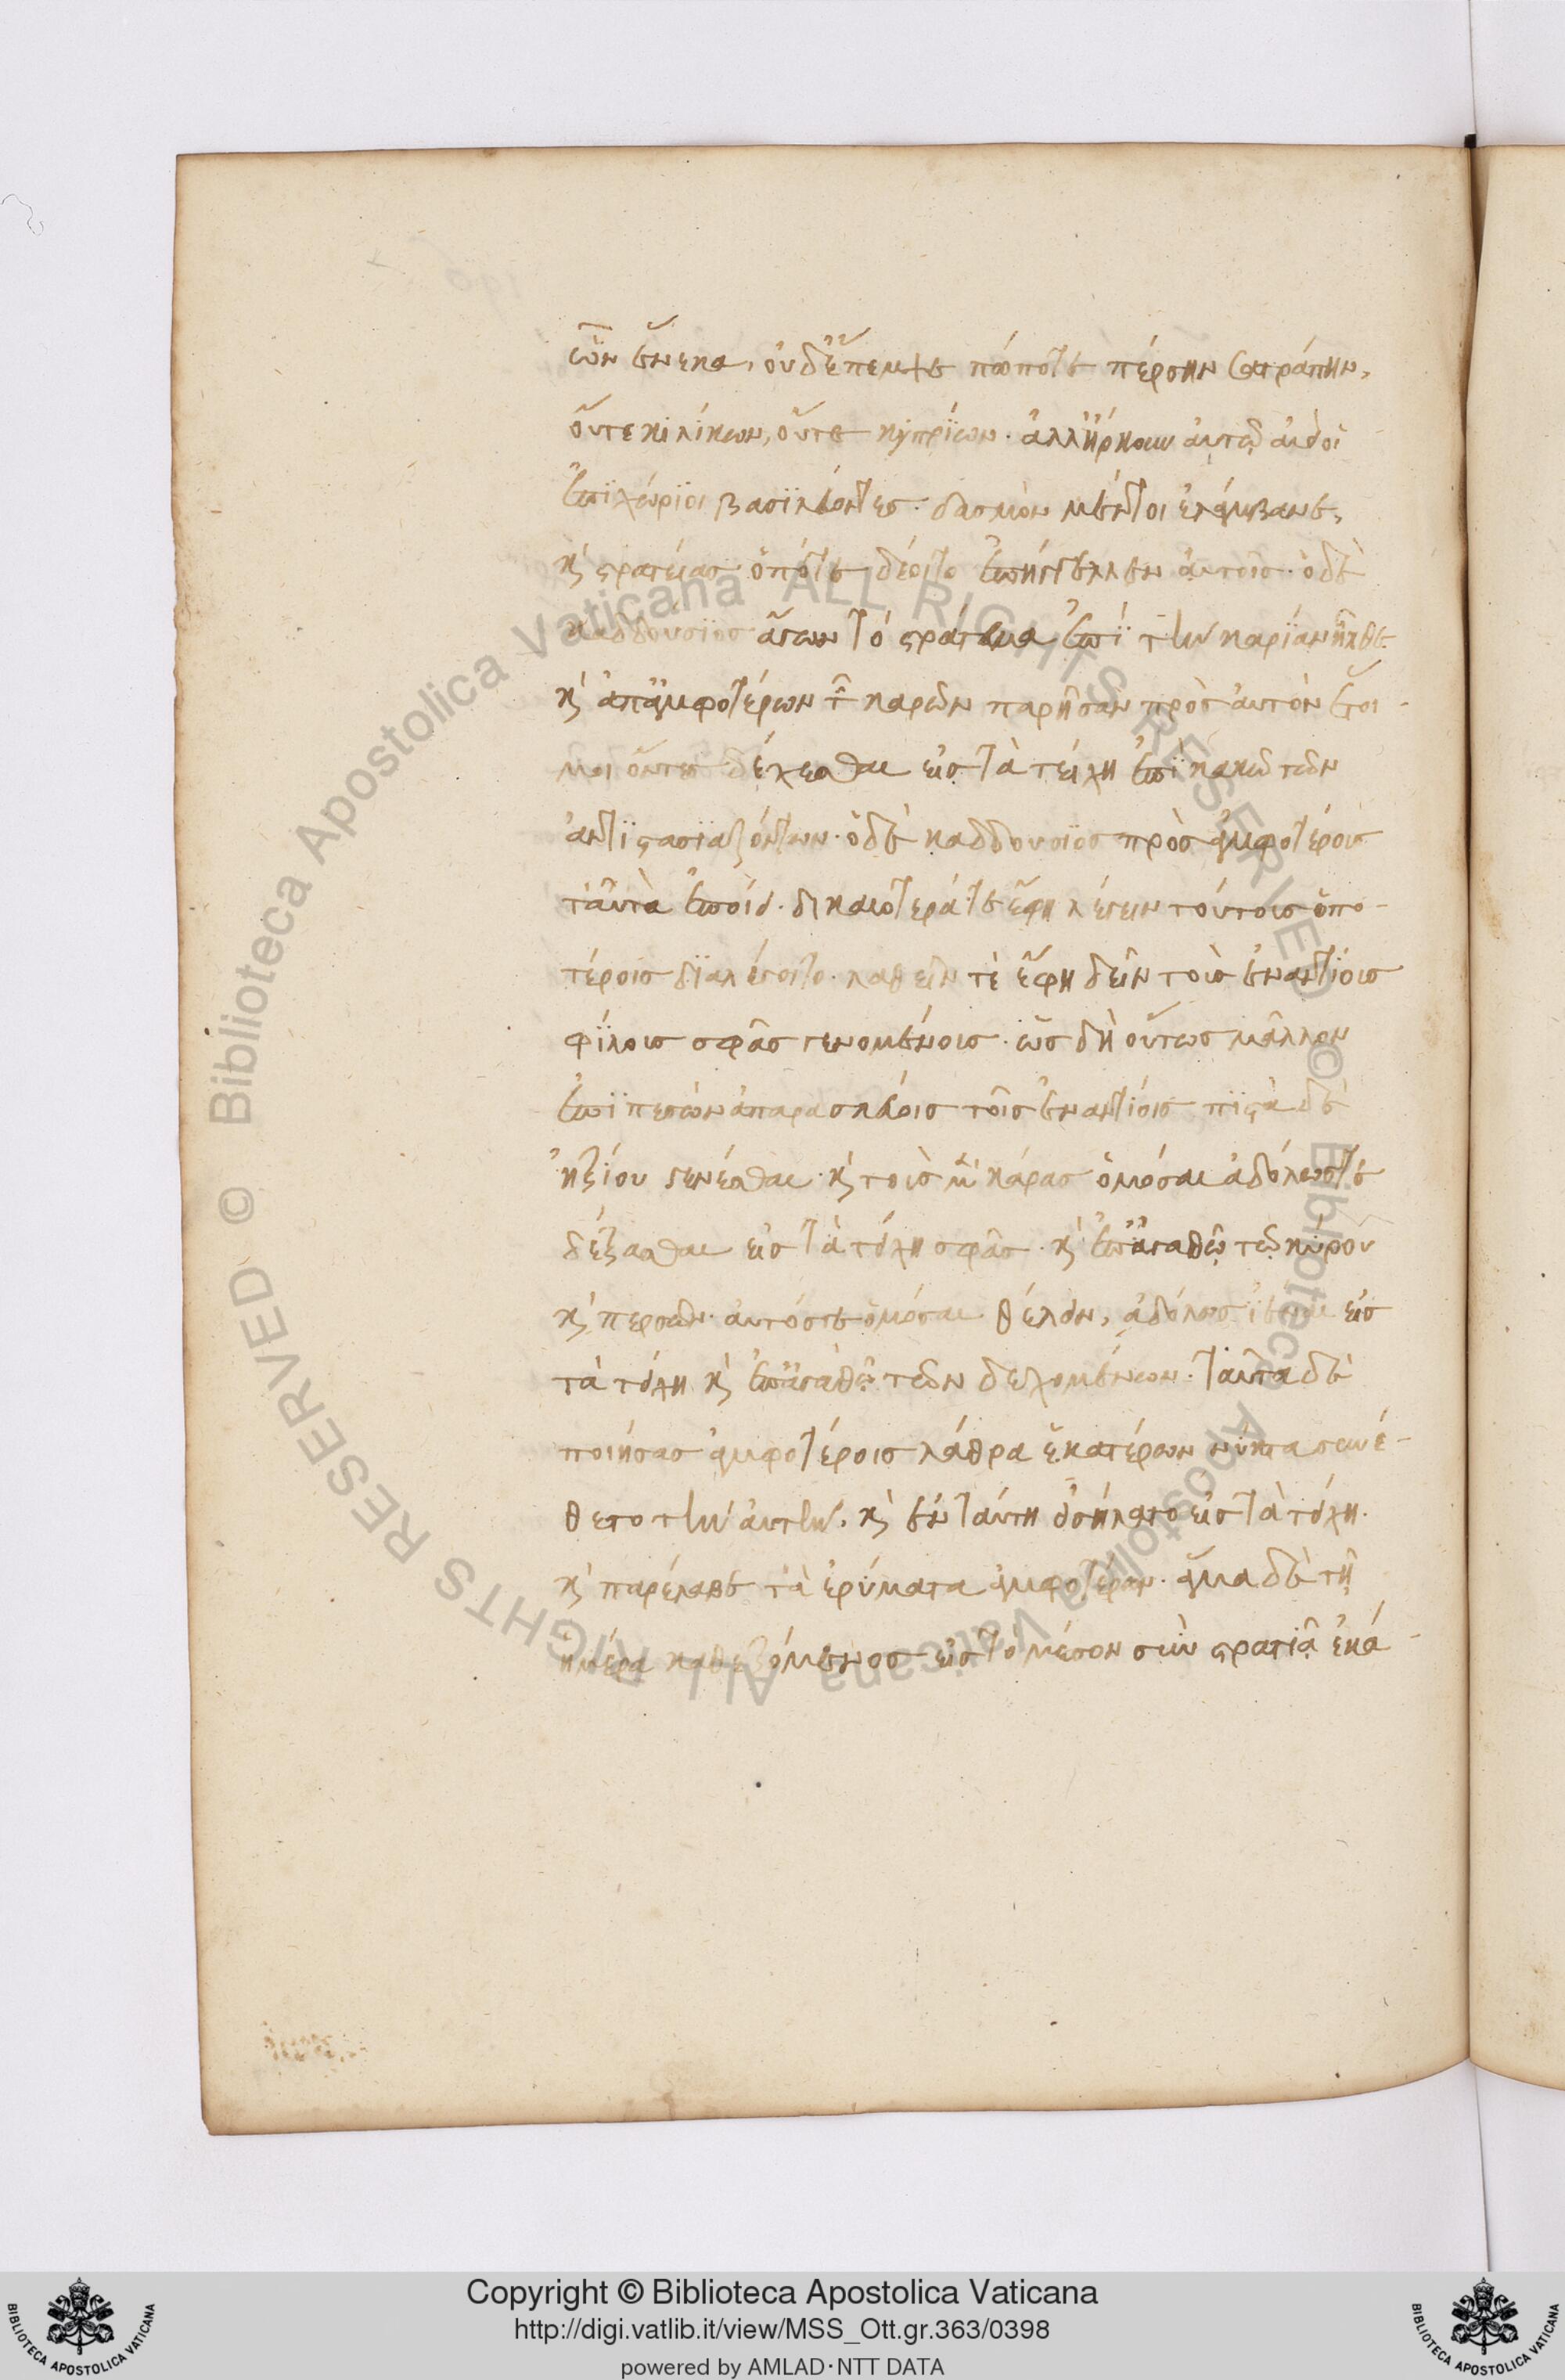 ὧν ἕνεκα, οὐδ' ἔπεμψε πώποτε πέρσην σατράπην,
οὔτε κιλίκων, οὔτε κυπρίων. ἀλλ' ἤρκουν αὐτῷ αἰεὶ οἱ
ἐπιχώριοι βασιλεύοντες. δασμὸν μέντοι ἐλάμβανε,
καὶ στρατείας ὁπότε δέοιτο ἐπήγγελλεν αὐτοῖς. ὁ δὲ
καδδούσιος ἄγων τὸ στράτευμα ἐπὶ τὴν καρίαν ἦλθε
καὶ ἀπ' ἀμφοτέρων τῶν καρῶν παρῆσαν πρὸς αὐτὸν ἕτοι-
μοι ὄντες δέχεσθαι εἰς τὰ τείχη ἐπὶ κακῷ τῶν
ἀντιστασιαζόντων. ὁ δὲ καδδούσιος πρὸς ἀμφοτέρους
ταὐτὰ ἐποίει. δικαιότερά τε ἔφη λέγειν τούτους ὁπο-
τέροις διαλέγοιτο. λαθεῖν τὲ ἔφη δεῖν τοὺς ἐναντίους
φίλους σφᾶς γενομένους. ὡς δὴ οὕτως μᾶλλον
ἐπιπεσὼν ἀπαρασκεύοις τοῖς ἐναντίοις πιστὰ δὲ
ἠξίου γενέσθαι. καὶ τοὺς μὲν κάρας ὀμόσαι ἀδόλως τέ
δέξασθαι εἰς τὰ τείχη σφᾶς. καὶ ἐπ' ἀγαθῷ τῷ κύρου
καὶ περσῶν. αὐτός τε ὀμόσαι θέλειν, ἀδόλως ἰέναι εἰς
τὰ τείχη καὶ ἐπ' ἀγαθῷ τῶν δεχομένων. ταῦτα δὲ
ποιήσας ἀμφοτέροις λάθρα ἑκατέρων νύκτα συνέ-
θετο τὴν αὐτήν. καὶ ἐν ταύτῃ εἰσήλατο εἰς τὰ τείχη.
καὶ παρέλαβε τὰ ἐρύματα ἀμφοτέρων. ἅμα δὲ τῇ
ἡμέρα καθεζόμενος εἰς τὸ μέσον σὺν στρατιᾷ ἐκά-
Copyright © Biblioteca Apostolica Vaticana
http://digi.vatlib.it/view/MSS_Ott.gr.363/0398
powered by AMLAD·NTT DATA